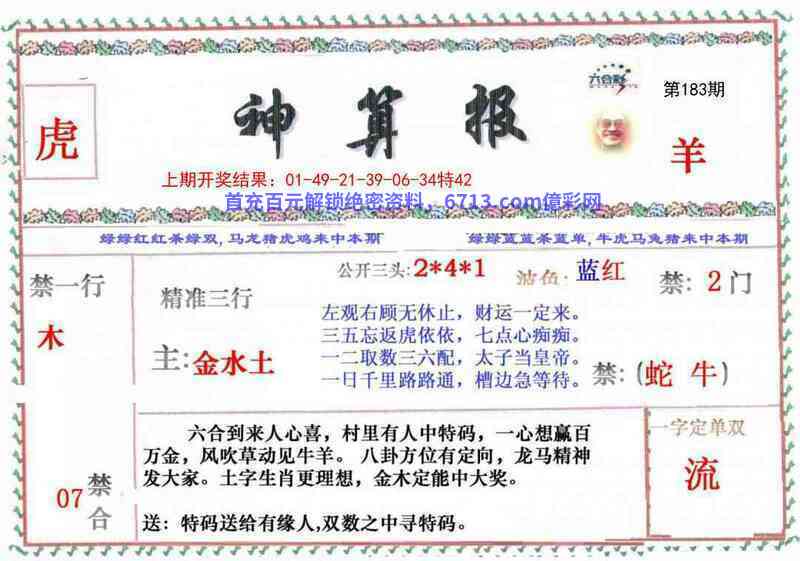 神算报
六合彩
第183期
虎
羊
上期开奖结果：01-49-21-39-06-34特42
首充百元解锁绝密资料，6713.com億彩网
绿绿红红杀绿双,马龙猪虎鸡来中本期
绿绿蓝蓝杀蓝单,牛虎马兔猪来中本期
禁一行
木
精准三行
主:金水土
公开三头:2*4*1
波色:蓝红
禁:2门
左观右顾无休止，财运一定来。
三五忘返虎依依，七点心痴痴。
一二取数三六配，太子当皇帝。
一日千里路路通，槽边急等待。
禁:(蛇 牛)
07
禁合
六合到来人心喜，村里有人中特码，一心想赢百
万金，风吹草动见牛羊。八卦方位有定向，龙马精神
发大家。土字生肖更理想，金木定能中大奖。
送：特码送给有缘人,双数之中寻特码。
一字定单双
流